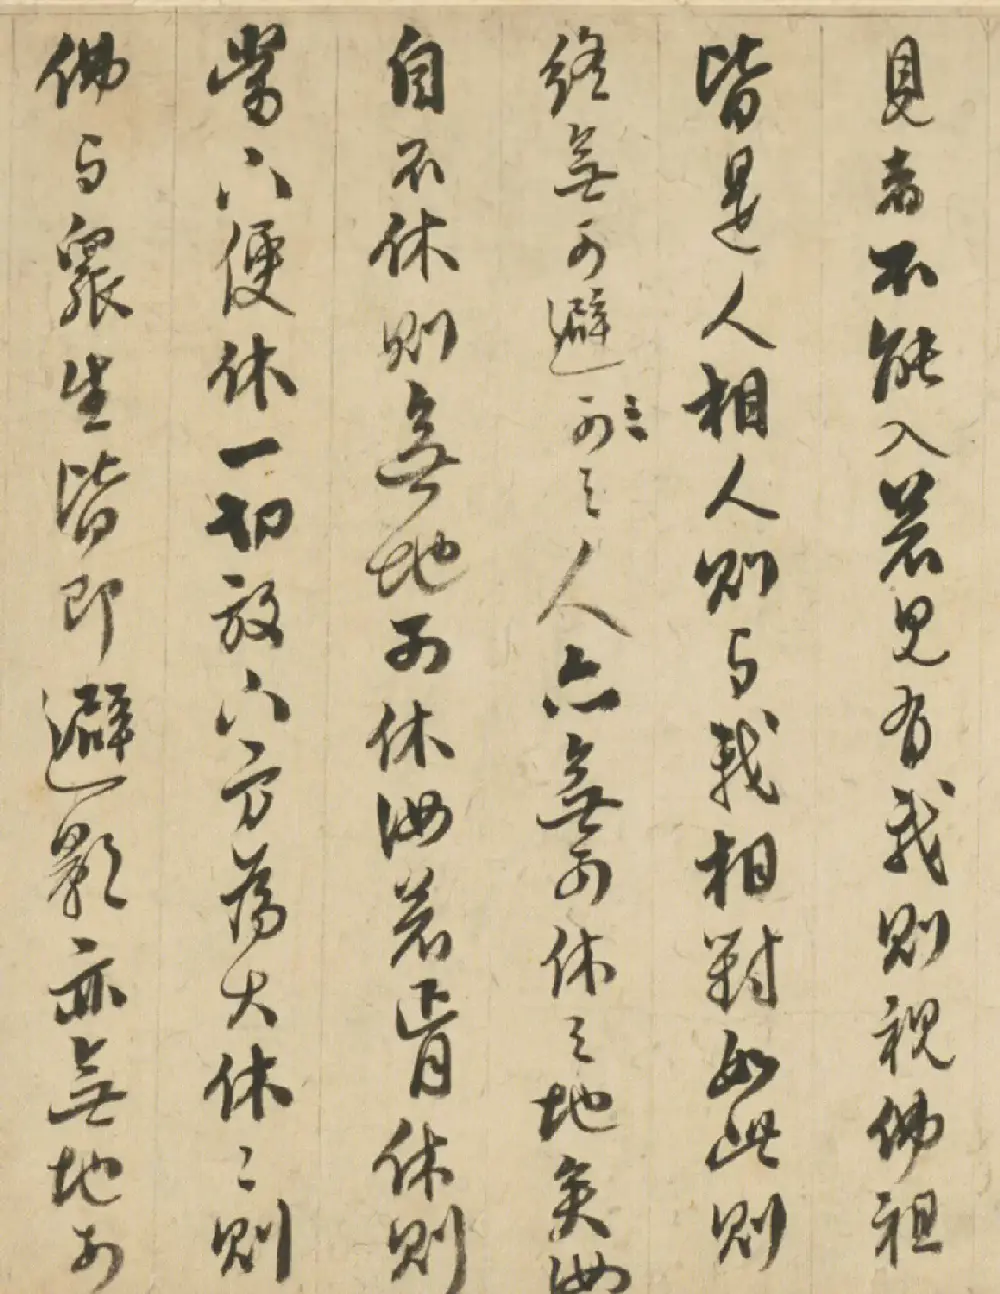 見者不能入若見有我則視佛祖
皆是人相人則与我相對如此則
終無可避可之人亦無可休之地矣汝
自不休則無地可休汝若肯休則
當下便休一切放下方為大休〻則
佛与眾生皆即避影亦無地可